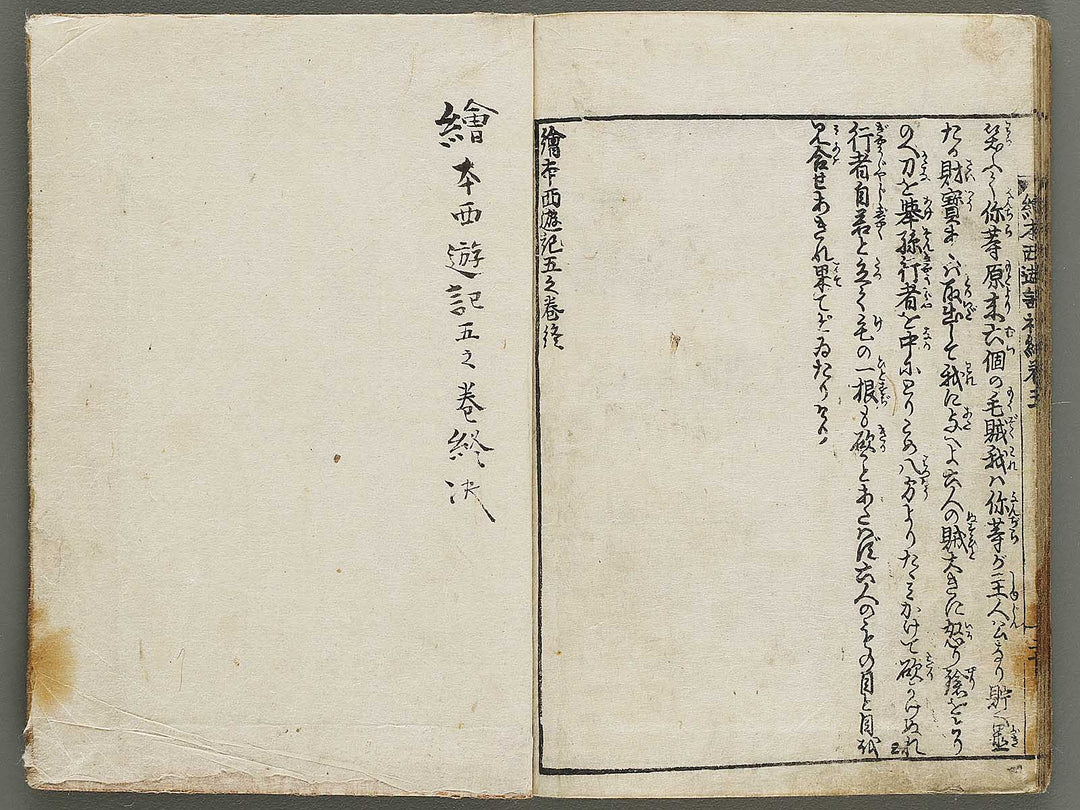 繪本西遊記初編卷五
笑ふて你等原来六個の毛賊我ハ你等が主人公なり貯へ置
たる財寶を取出して我に与へよ六人の賊大きに怒り鎗をとり
の人刀を擧孫行者を中にとりこめ八方よりたゝみかけて砍つけぬれ
行者自若と立て毛の一根も砍とあたハず六人のもの目と目を
見合せあきれ果てぞゐたりける
繪本西遊記五之卷終
繪本西遊記五之卷終決